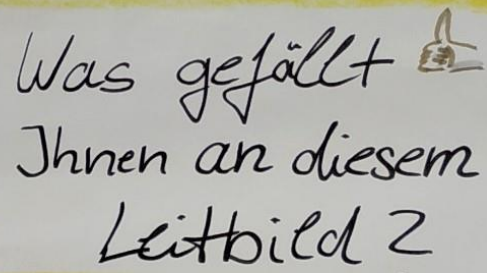 Was gefällt
Ihnen an diesem
Leitbild ?